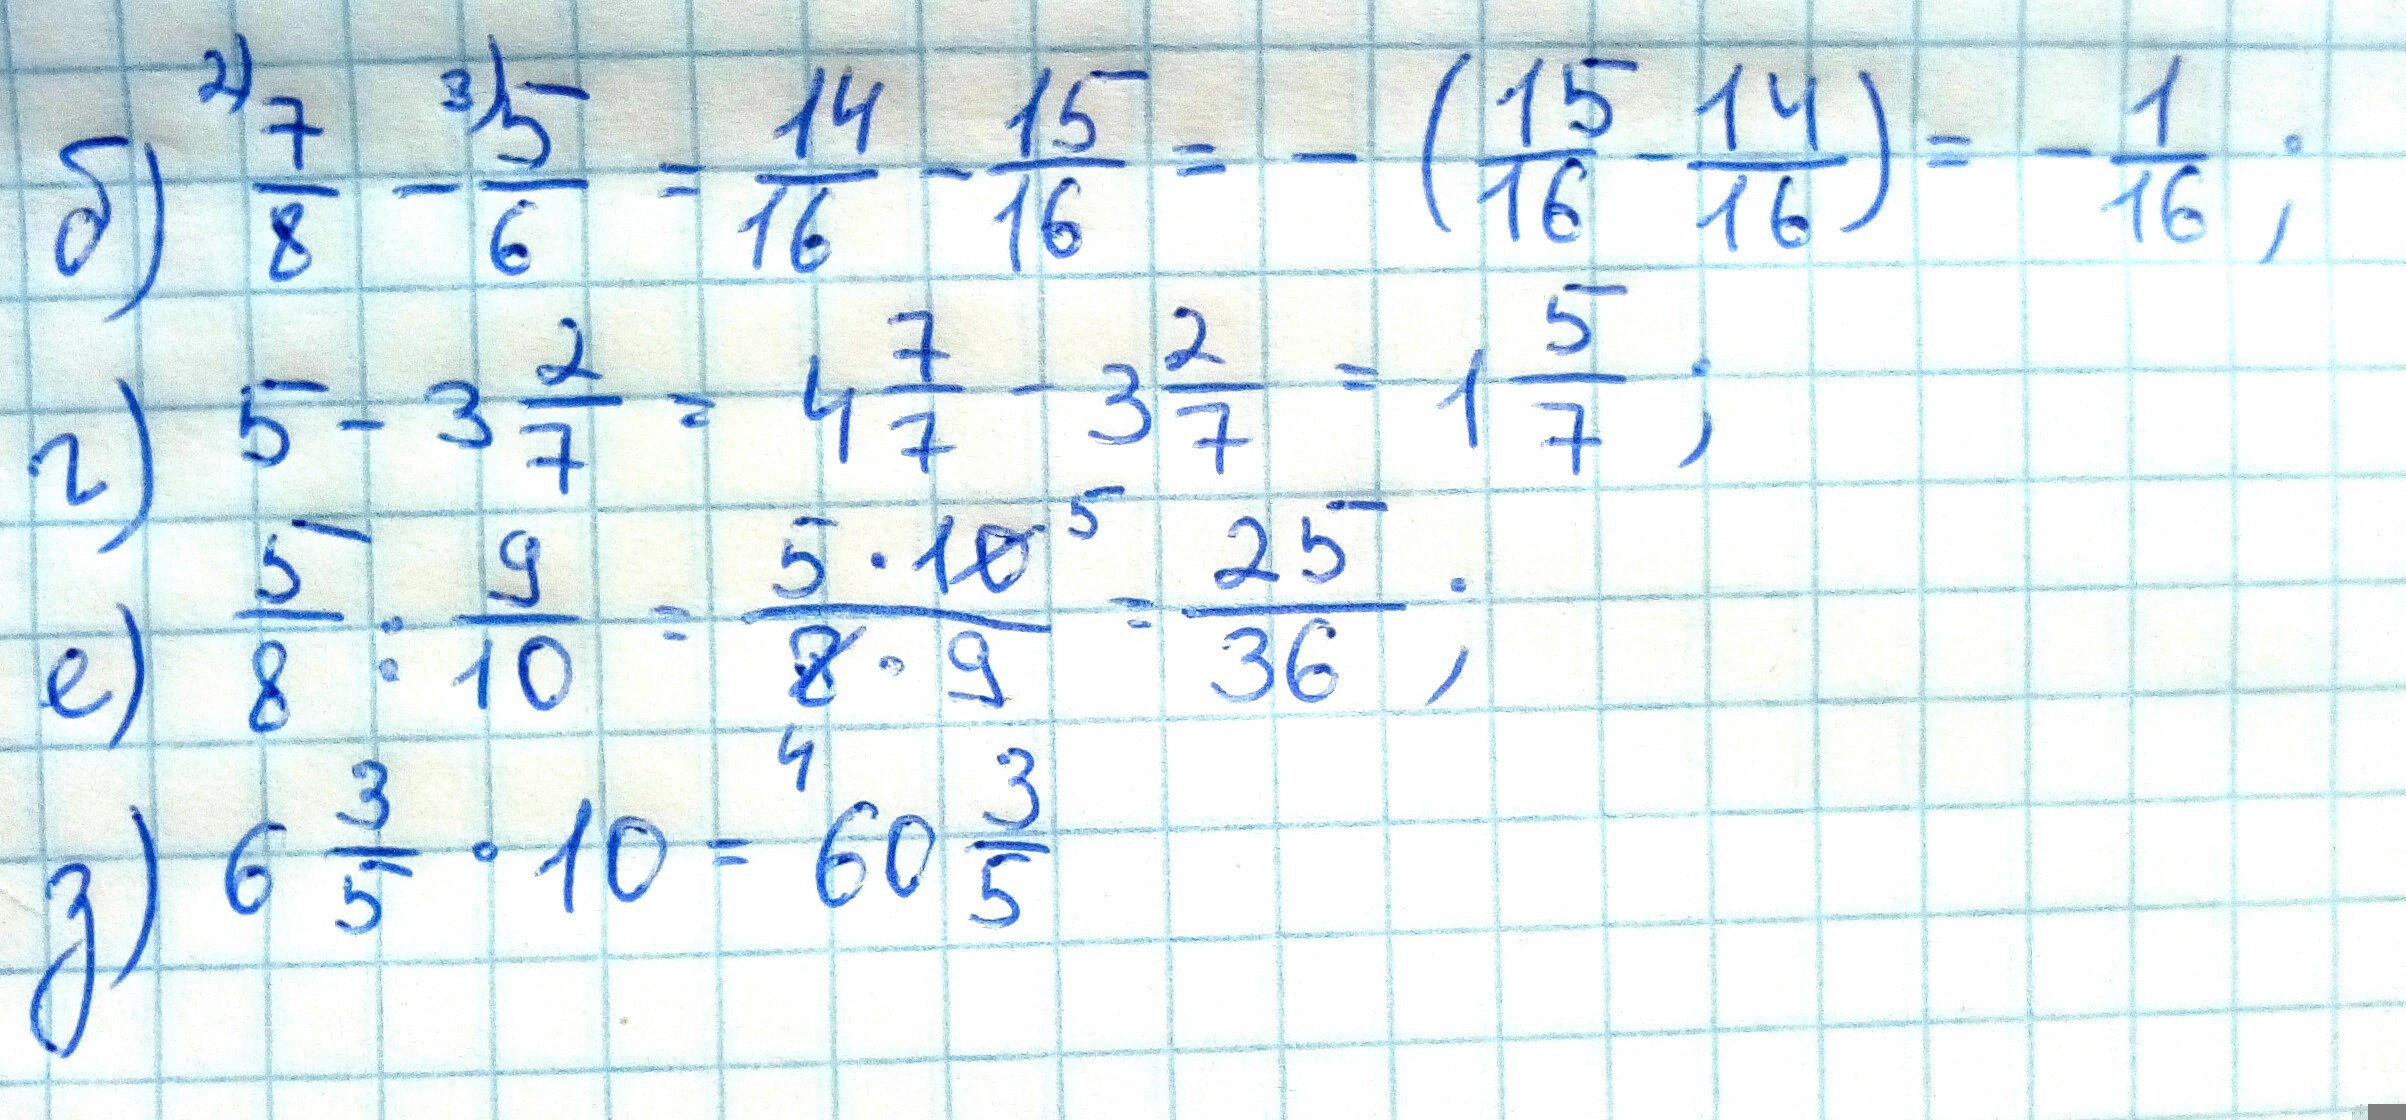 б) ²⁾7/8 - ³⁾5/6 = 14/16 - 15/16 = - (15/16 - 14/16) = - 1/16;
г) 5 - 3 2/7 = 4 7/7 - 3 2/7 = 1 5/7;
е) 5/8 : 9/10 = 5 · 10 ⁵/8 ₄ · 9 = 25/36;
з) 6 3/5 · 10 = 60 3/5